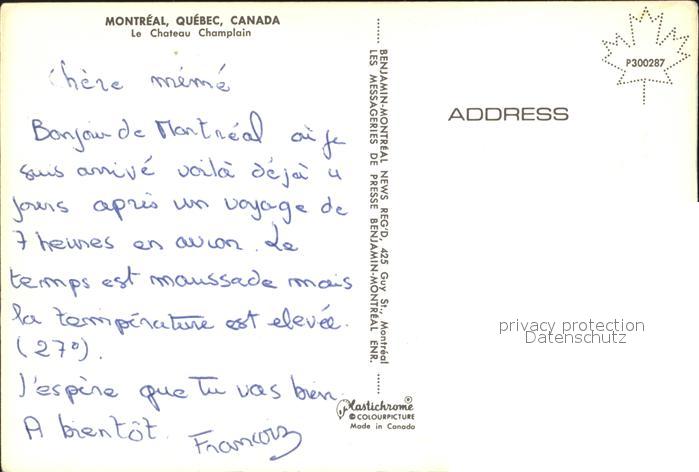 MONTRÉAL, QUÉBEC, CANADA
Le Chateau Champlain
Chère mémé
Bonjour de Montréal où je
suis arrivé voilà déjà 4
jours après un voyage de
7 heures en avion. Le
temps est maussade mais
la température est elevée.
(27°).
J'espère que Tu vas bien.
A bientôt. François
BENJAMIN-MONTRÉAL NEWS REG'D, 425 Guy St., Montréal
LES MESSAGERIES DE PRESSE BENJAMIN-MONTRÉAL ENR.
Plastichrome
© COLOURPICTURE
Made in Canada
P300287
ADDRESS
privacy protection
Datenschutz